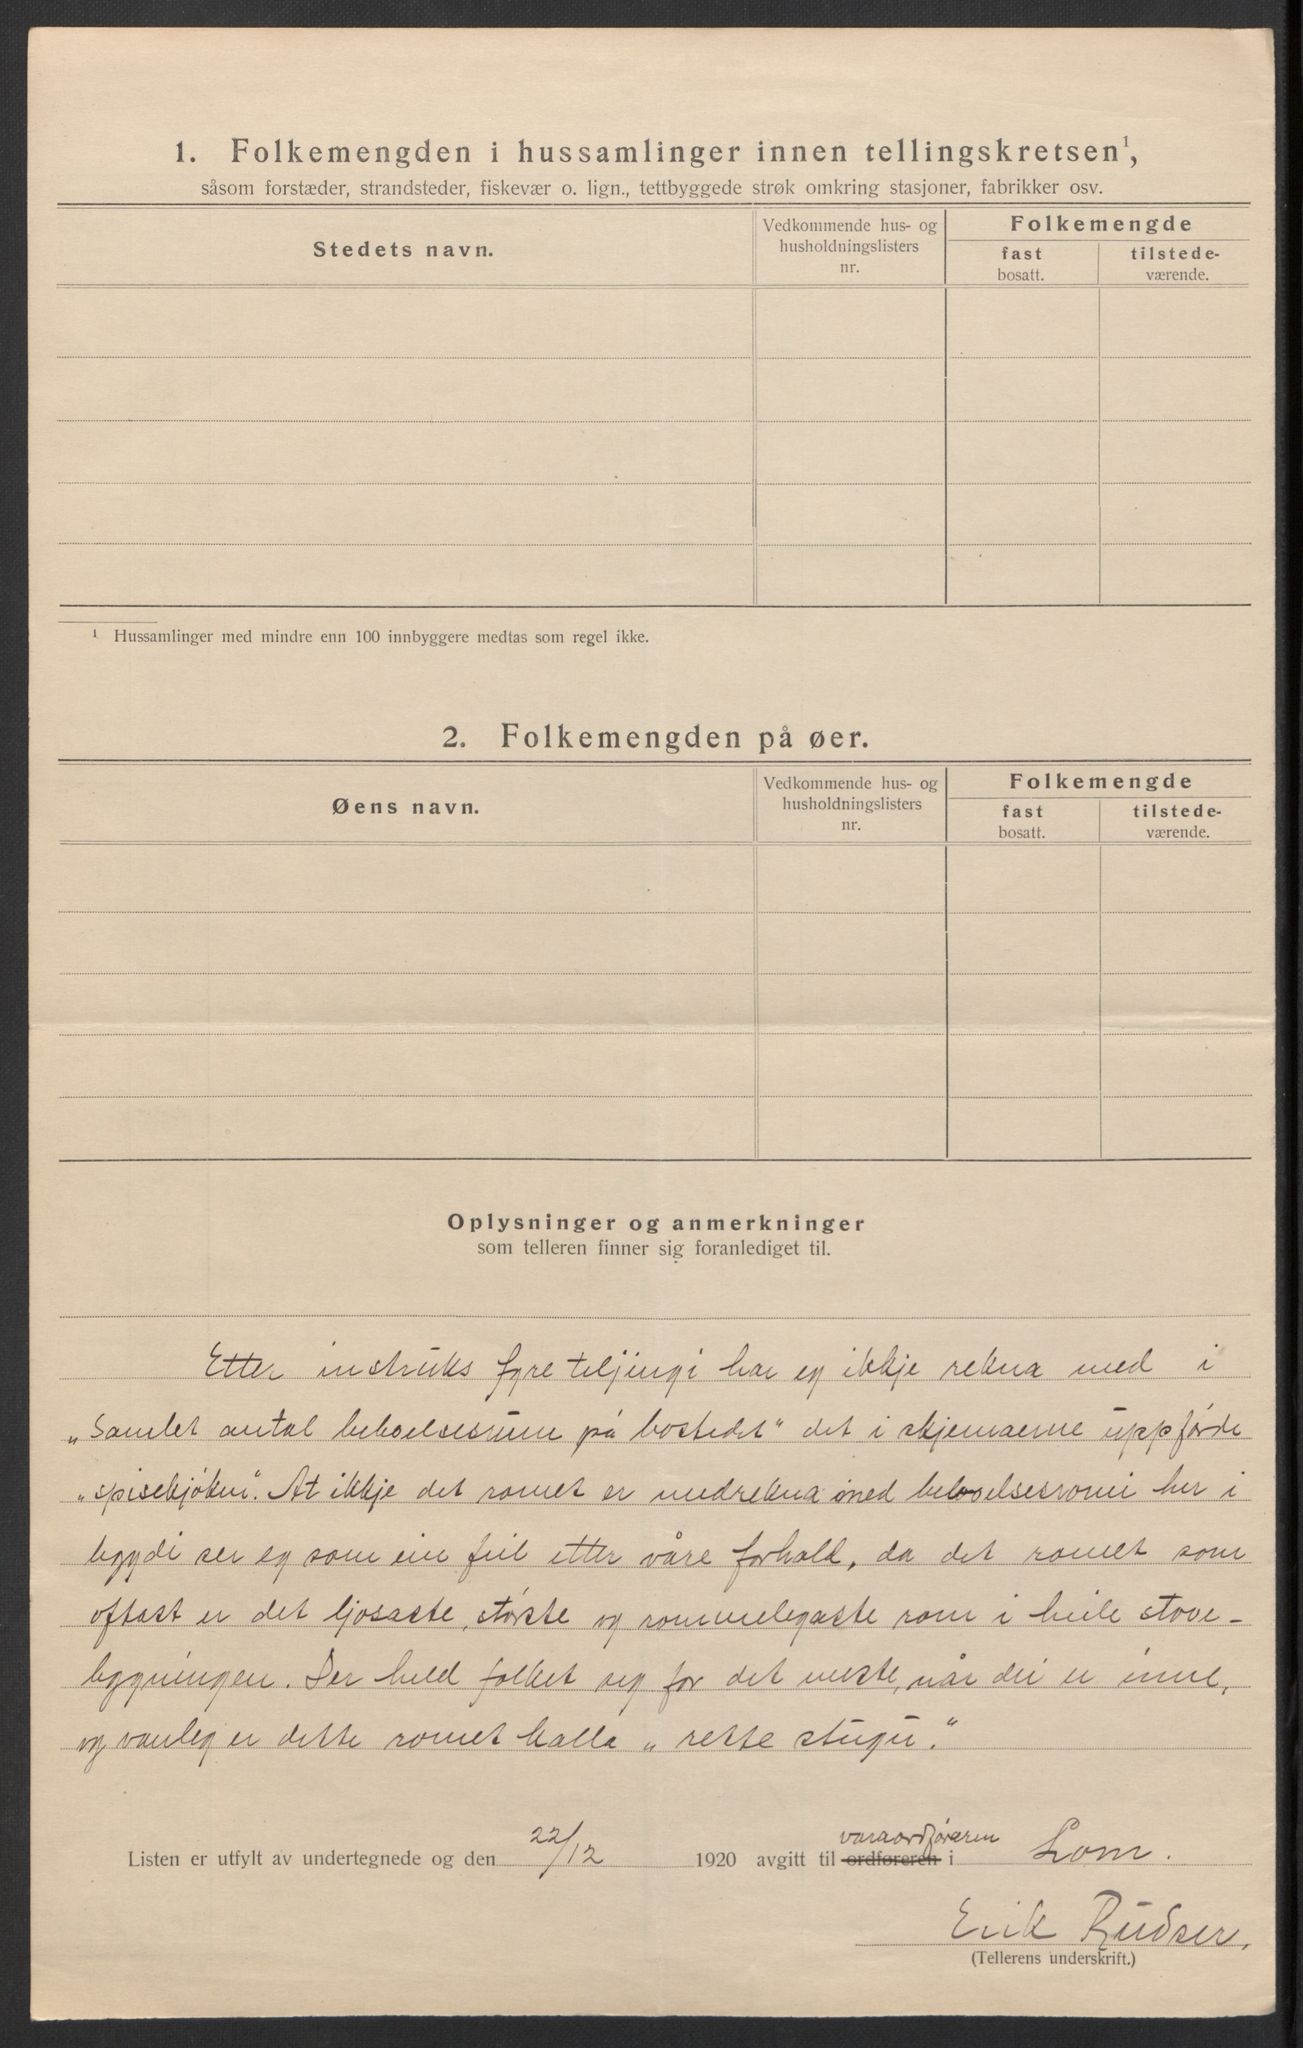 1. Folkemengden i hussamlinger innen tellingskretsen¹,
såsom forstæder, strandsteder, fiskevær o. lign., tettbyggede strøk omkring stasjoner, fabrikker osv.
Stedets navn.
Vedkommende hus- og
husholdningslisters
nr.
Folkemengde
fast
bosatt.
tilstede-
værende.
¹ Hussamlinger med mindre enn 100 innbyggere medtas som regel ikke.
2. Folkemengden på øer.
Øens navn.
Vedkommende hus- og
husholdningslisters
nr.
Folkemengde
fast
bosatt.
tilstede-
værende.
Oplysninger og anmerkninger
som telleren finner sig foranlediget til.
Etter instruks fyre teljingi har eg ikkje rekna med i
„Samlet antal beboelsesrum på bostedet“ det i skjemaerne uppførde
„spisekjøken“. At ikkje det romet er medrekna med beboelsesromi her i
bygdi ser eg som ein feil etter våre forhold, da det romet som
oftast er det ljosaste, største og rommelegaste rom i heile stove-
bygningen. Der held folket seg for det meste, når dei er inne,
og vanleg er dette romet kalla „rette stugu“.
Listen er utfylt av undertegnede og den 22/12 1920 avgitt til ordføreren varaordføreren i Lom.
Erik Rudser.
(Tellerens underskrift.)